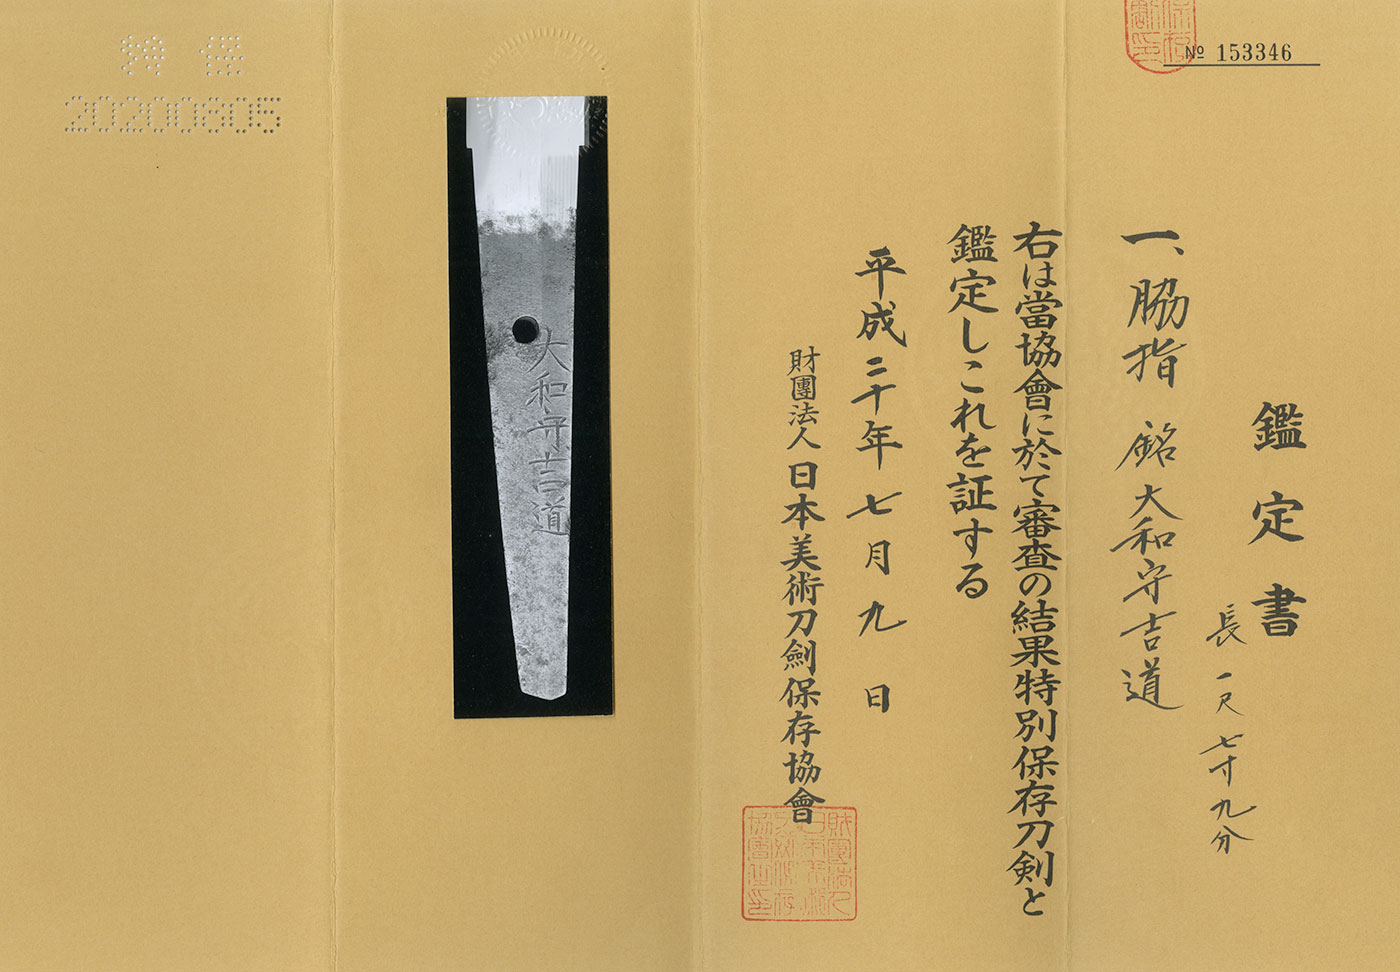 № 153346
鑑定書
一、脇指 銘大和守吉道
長一尺七寸九分
右は當協會に於て審査の結果特別保存刀剣と
鑑定しこれを証する
平成二十年七月九日
財團法人日本美術刀劍保存協會
大和守吉道
特保
20200605